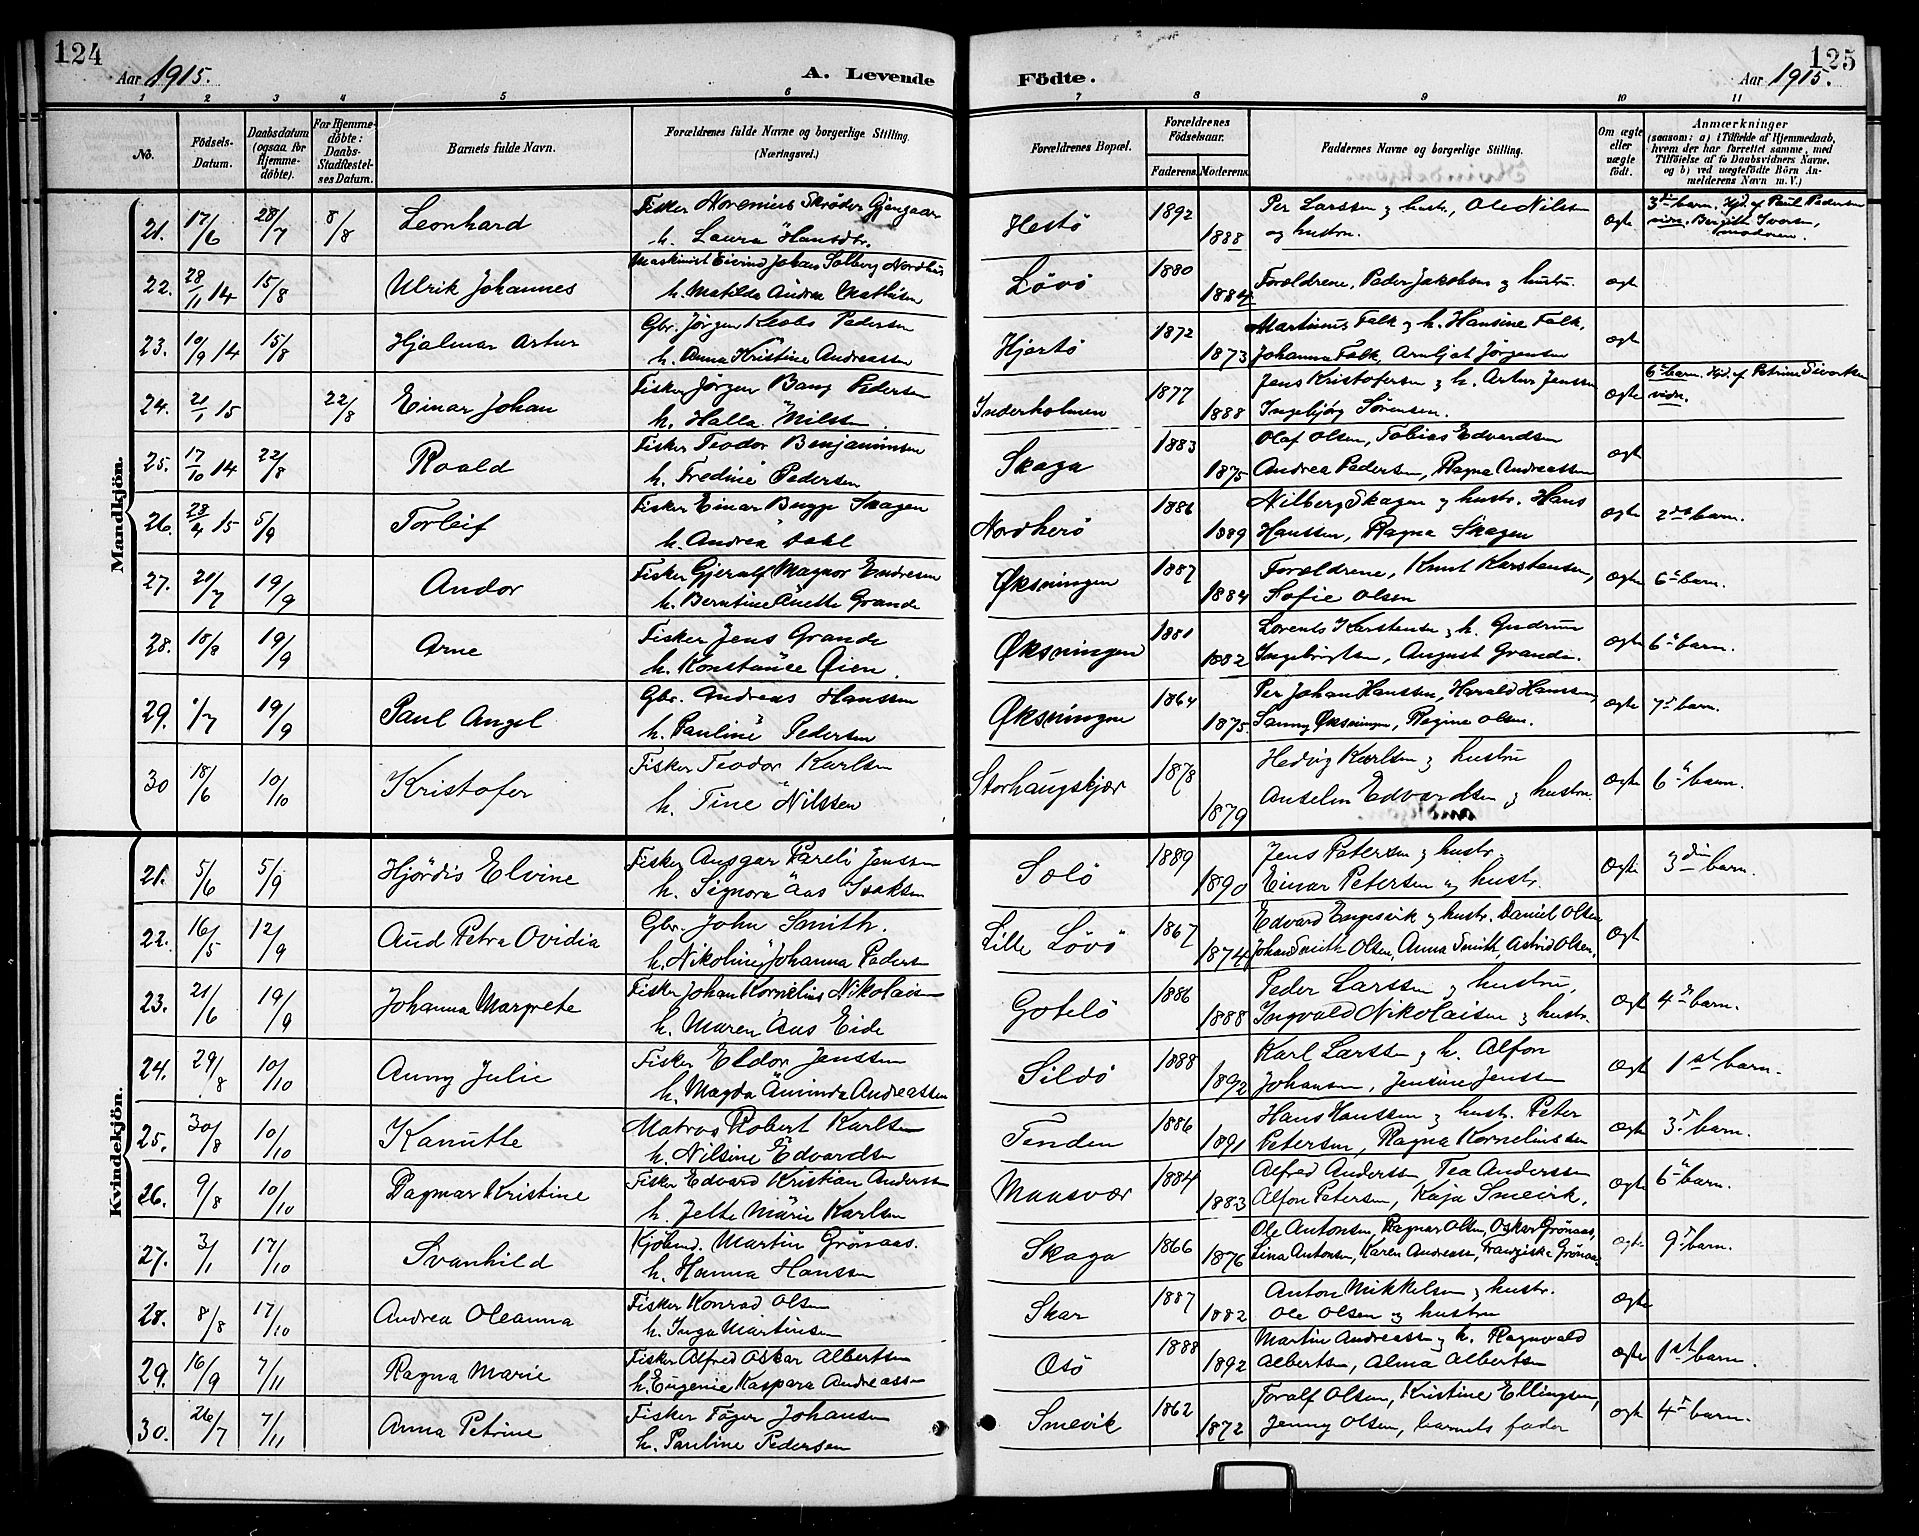 124
Aar 1915.
A. Levende
Födte.
125
Aar 1915.
1 2 3 4 5 6 7 8 9 10 11
No.
Födsels-Datum.
Daabsdatum (ogsaa for Hjemmedöbte).
For Hjemmedöbte: Daabs-Stadfæstelses Datum.
Barnets fulde Navn.
Forældrenes fulde Navne og borgerlige Stilling. (Næringsvei.)
Forældrenes Bopæl.
Forældrenes Födselsaar.
Faderens. Moderens.
Faddernes Navne og borgerlige Stilling.
Om ægte eller uægte födt.
Anmærkninger
(saasom: a) i Tilfælde af Hjemmedaab,
hvem der har forrettet samme, med
Tilföielse af to Daabsvidners Navne,
og b) ved uægtefödte Börn An-
melderens Navn m. V.)
Mandkjön.
21. 17/6 28/7 8/8 Leonhard Fisker Norenius Skröder Gjengaar
h. Laura Hansdtr. Hestö 1892 1888 Per Larssen og hustr, Ole Nilsen
og hustru. ægte 3die barn. Hjd. af Paul Pedersen
vidn. Bergith Iversen,
moderen.
22. 28/11 14 15/8 Ulrik Johannes Maskinist Eivind Johan Solberg Nordhus
h. Matilda Andrea Mathisen Lövö 1880 1884 Forældrene, Peder Jakobsen og hustru. ægte
23. 10/9 14 15/8 Hjalmar Artur Gbr. Jörgen Pedersen
h. Anna Kristine Andreassen Hjertö 1872 1873 Martinus Falk og h. Hansine Falk,
Johanna Falk, Arnljot Jörgensen ægte
24. 21/1 15 22/8 Einar Johan Fisker Jörgen Bang Pedersen
h. Halla Nilssen. Inderholmen 1877 1888 Jens Kristofersen og h. Artur Jenssen
Ingebjörg Sörensen. ægte 6te barn. Hjd. af Petrine
vidn.
25. 17/10 14 22/8 Roald Fisker Teodor Benjaminsen
h. Fredine Pedersen Skaga 1883 1875 Olaf Olsen, Tobias Edvardsen
Andrea Pedersen, Ragna Andreassen ægte
26. 23/4 15 5/9 Torleif Fisker Einar Bugge Skagen
h. Andrea Dahl Nordherö 1886 1889 Nilberg Skagen og hustr. Hans
Hanssen, Ragna Skagen ægte 2det barn.
27. 21/7 19/9 Andor Fisker Gjeralf Magnor Endresen
h. Berntine Anette Grande Øksningen 1887 1884 Forældrene, Knut Karstensen,
Sofie Olsen ægte 6te barn.
28. 18/8 19/9 Arne Fisker Jens Grande
h. Konstance Øien. Øksningen 1881 1882 Lorents Karstensen og h. Gudrun
Ingebrigtsen, August Grande. ægte 6te barn.
29. 1/7 19/9 Paul Angel Gbr. Andreas Hanssen
h. Pauline Pedersen Øksningen 1864 1875. Per Johan Hanssen, Harald Hanssen,
Sanny Øksningen, Regine Olsen. ægte 7de barn.
30 18/6 10/10 Kristofer Fisker Teodor Karlsen
h. Tine Nilssen Storhaugskjær 1878 1879 Hedvig Karlsen og hustru
Anselm Edvardsen og hustru. ægte 6te barn.
Kvindekjön.
21. 5/6 5/9 Hjördis Elvine Fisker Ansgar Pareli Jenssen
h. Signora Aas Isaksen Solö 1889 1890 Jens Petersen og hustr.
Einar Petersen og hustr. ægte 3die barn.
22. 16/5 12/9 Aud Petra Ovidia Gbr. John Smith.
h. Nikoline Johanna Pedersen Lille Lövö 1867 1874 Edvard Engesvik og hustr. Daniel Olsen
Johan Smith Olsen, Anna Smith, Astrid Olsen. ægte
23. 21/6 19/9 Johanna Margrete Fisker Johan Kornelius Nikolaisen
h. Maren Aas Eide Gotelö 1886 1888 Peder Larssen og hustru,
Ingvald Nikolaisen og hustr. ægte 4de barn.
24. 29/8 10/10 Anny Julie Fisker Eldor Jenssen
h. Magda Aminda Andreassen Sildö 1888 1892 Karl Larssen og h. Alfon
Johansen, Jensine Jenssen ægte 1ste barn.
25. 30/8 10/10 Kanutte Matros Robert Karlsen
h. Nilsine Edvardsen Tenden 1886 1891 Hans Hanssen og hustr. Peter
Petersen, Ragna Korneliussen ægte 3. barn.
26. 9/8 10/10 Dagmar Kristine Fisker Edvard Kristian Andersen
h. Jelte Marie Karlsen Maasvær 1884 1883 Alfred Anderssen, Tea Anderssen
Alfon Petersen, Kaja Smevik. ægte 6te barn.
27. 3/1 17/10 Svanhild Kjöbmd. Martin Grönaas.
h. Hanna Hansen Skaga 1866 1876 Ole Antonsen, Ragnar Olsen, Oskar Grönaas,
Lina Antonsen, Karen Andreassen, Franziska Grönaas ægte 9de barn.
28. 8/8 17/10 Andrea Oleanna Fisker Konrad Olsen
h. Inga Martinsen Skar 1887 1882 Anton Mikkelsen og hustr.
Ole Olsen og hustru ægte
29. 16/9 7/11 Ragna Marie Fisker Alfred Oskar Albertsen
h. Eugenie Kaspara Andreassen Osö 1888 1892 Martin Andreassen og h. Ragnvald
Albertsen, Alma Albertsen ægte 1ste barn.
30. 26/7 7/11 Anna Petrine Fisker Töger Johansen
h. Pauline Pedersen Smevik 1862 1872 Toralf Olsen, Kristine Ellingsen,
Jenny Olsen, barnets fader ægte 4de barn.